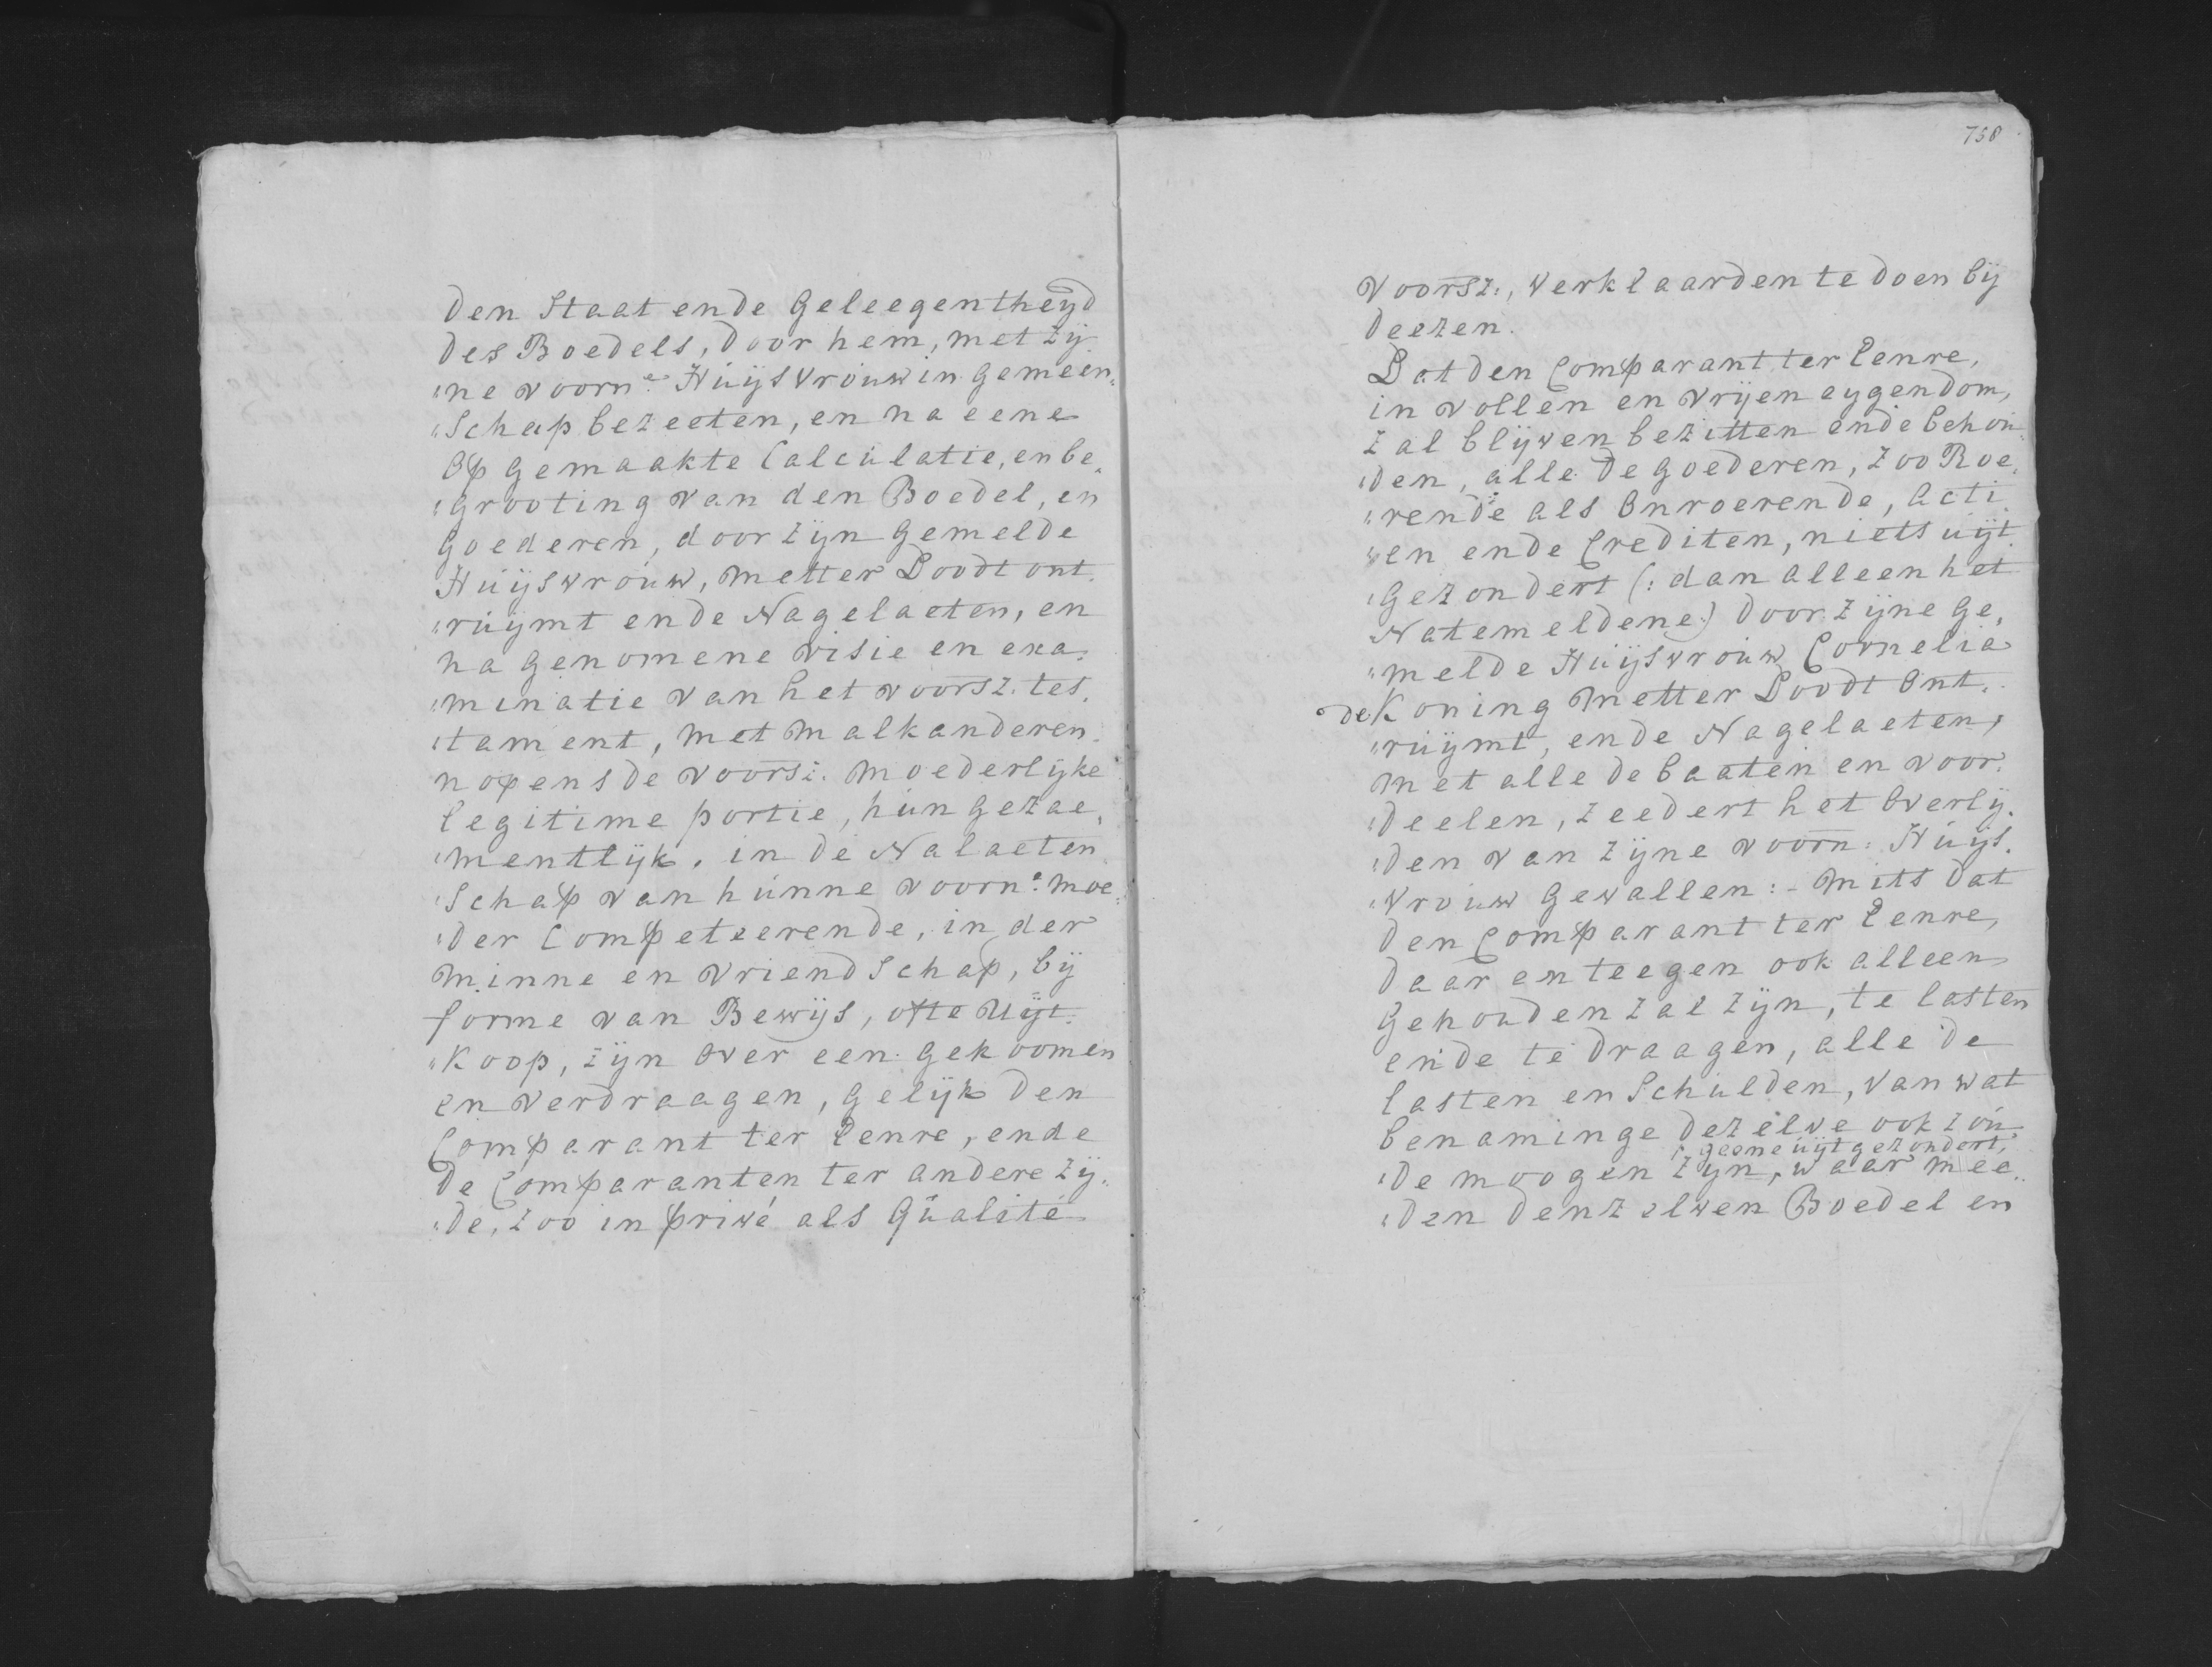 den Staat ende Geleegentheyd
des Boedels, door hem, met zij
„ne voorn.e Huijsvrouw in gemeen„
„schap bezeeten, en na eene
op gemaakte Calculatie, en be„
„grooting van den Boedel, en
Goederen, door zijn gemelde
Huijsvrouw, metter Doodt ont„
„ruijmt ende Nagelaeten, en
na genomene visie en exa„
„minatie van het voorsz. tes„
„tament, met malkanderen
nopens de voorsz. moederlijke
legitime portie, hun gezae„
„mentlijk, in de Nalaeten„
„schap van hunne voorn.e moe„
„der Competeerende, in der
minne en vriendschap, bij
forme van Bewijs, ofte uijt„
„koop, zijn over een gekoomen
en verdraagen, gelijk den
Comparant ter Eenre, ende
de Comparanten ter andere zij„
„de, zoo in privé als Qualité
758
voorsz:, verklaarden te doen bij
deezen.
Dat den Comparant ter Eenre,
in vollen en vrijen eygendom,
zal blijven bezitten ende behou„
„den, alle de goederen, zoo Roe„
„rende als Onroerende, acti„
„en ende Crediten, niets uijt„
„gezondert (: dan alleen het
Natemeldene:) door zijne ge„
„melde Huijsvrouw Cornelia
de Koning metter Doodt ont„
„ruijmt, ende Nagelaeten,
met alle de baaten en voor„
„deelen, zeedert het overlij„
„den van zijne voorn: Huijs„
„vrouw gevallen: - mits dat
den Comparant ter Eenre,
daar enteegen ook alleen
gehouden zal zijn, te lasten
ende te draagen, alle de
lasten en schulden, van wat
benaminge dezelve ook zou„
geene uijtgezondert,
„de moogen zijn, waar mee„
„den denzelven Boedel en